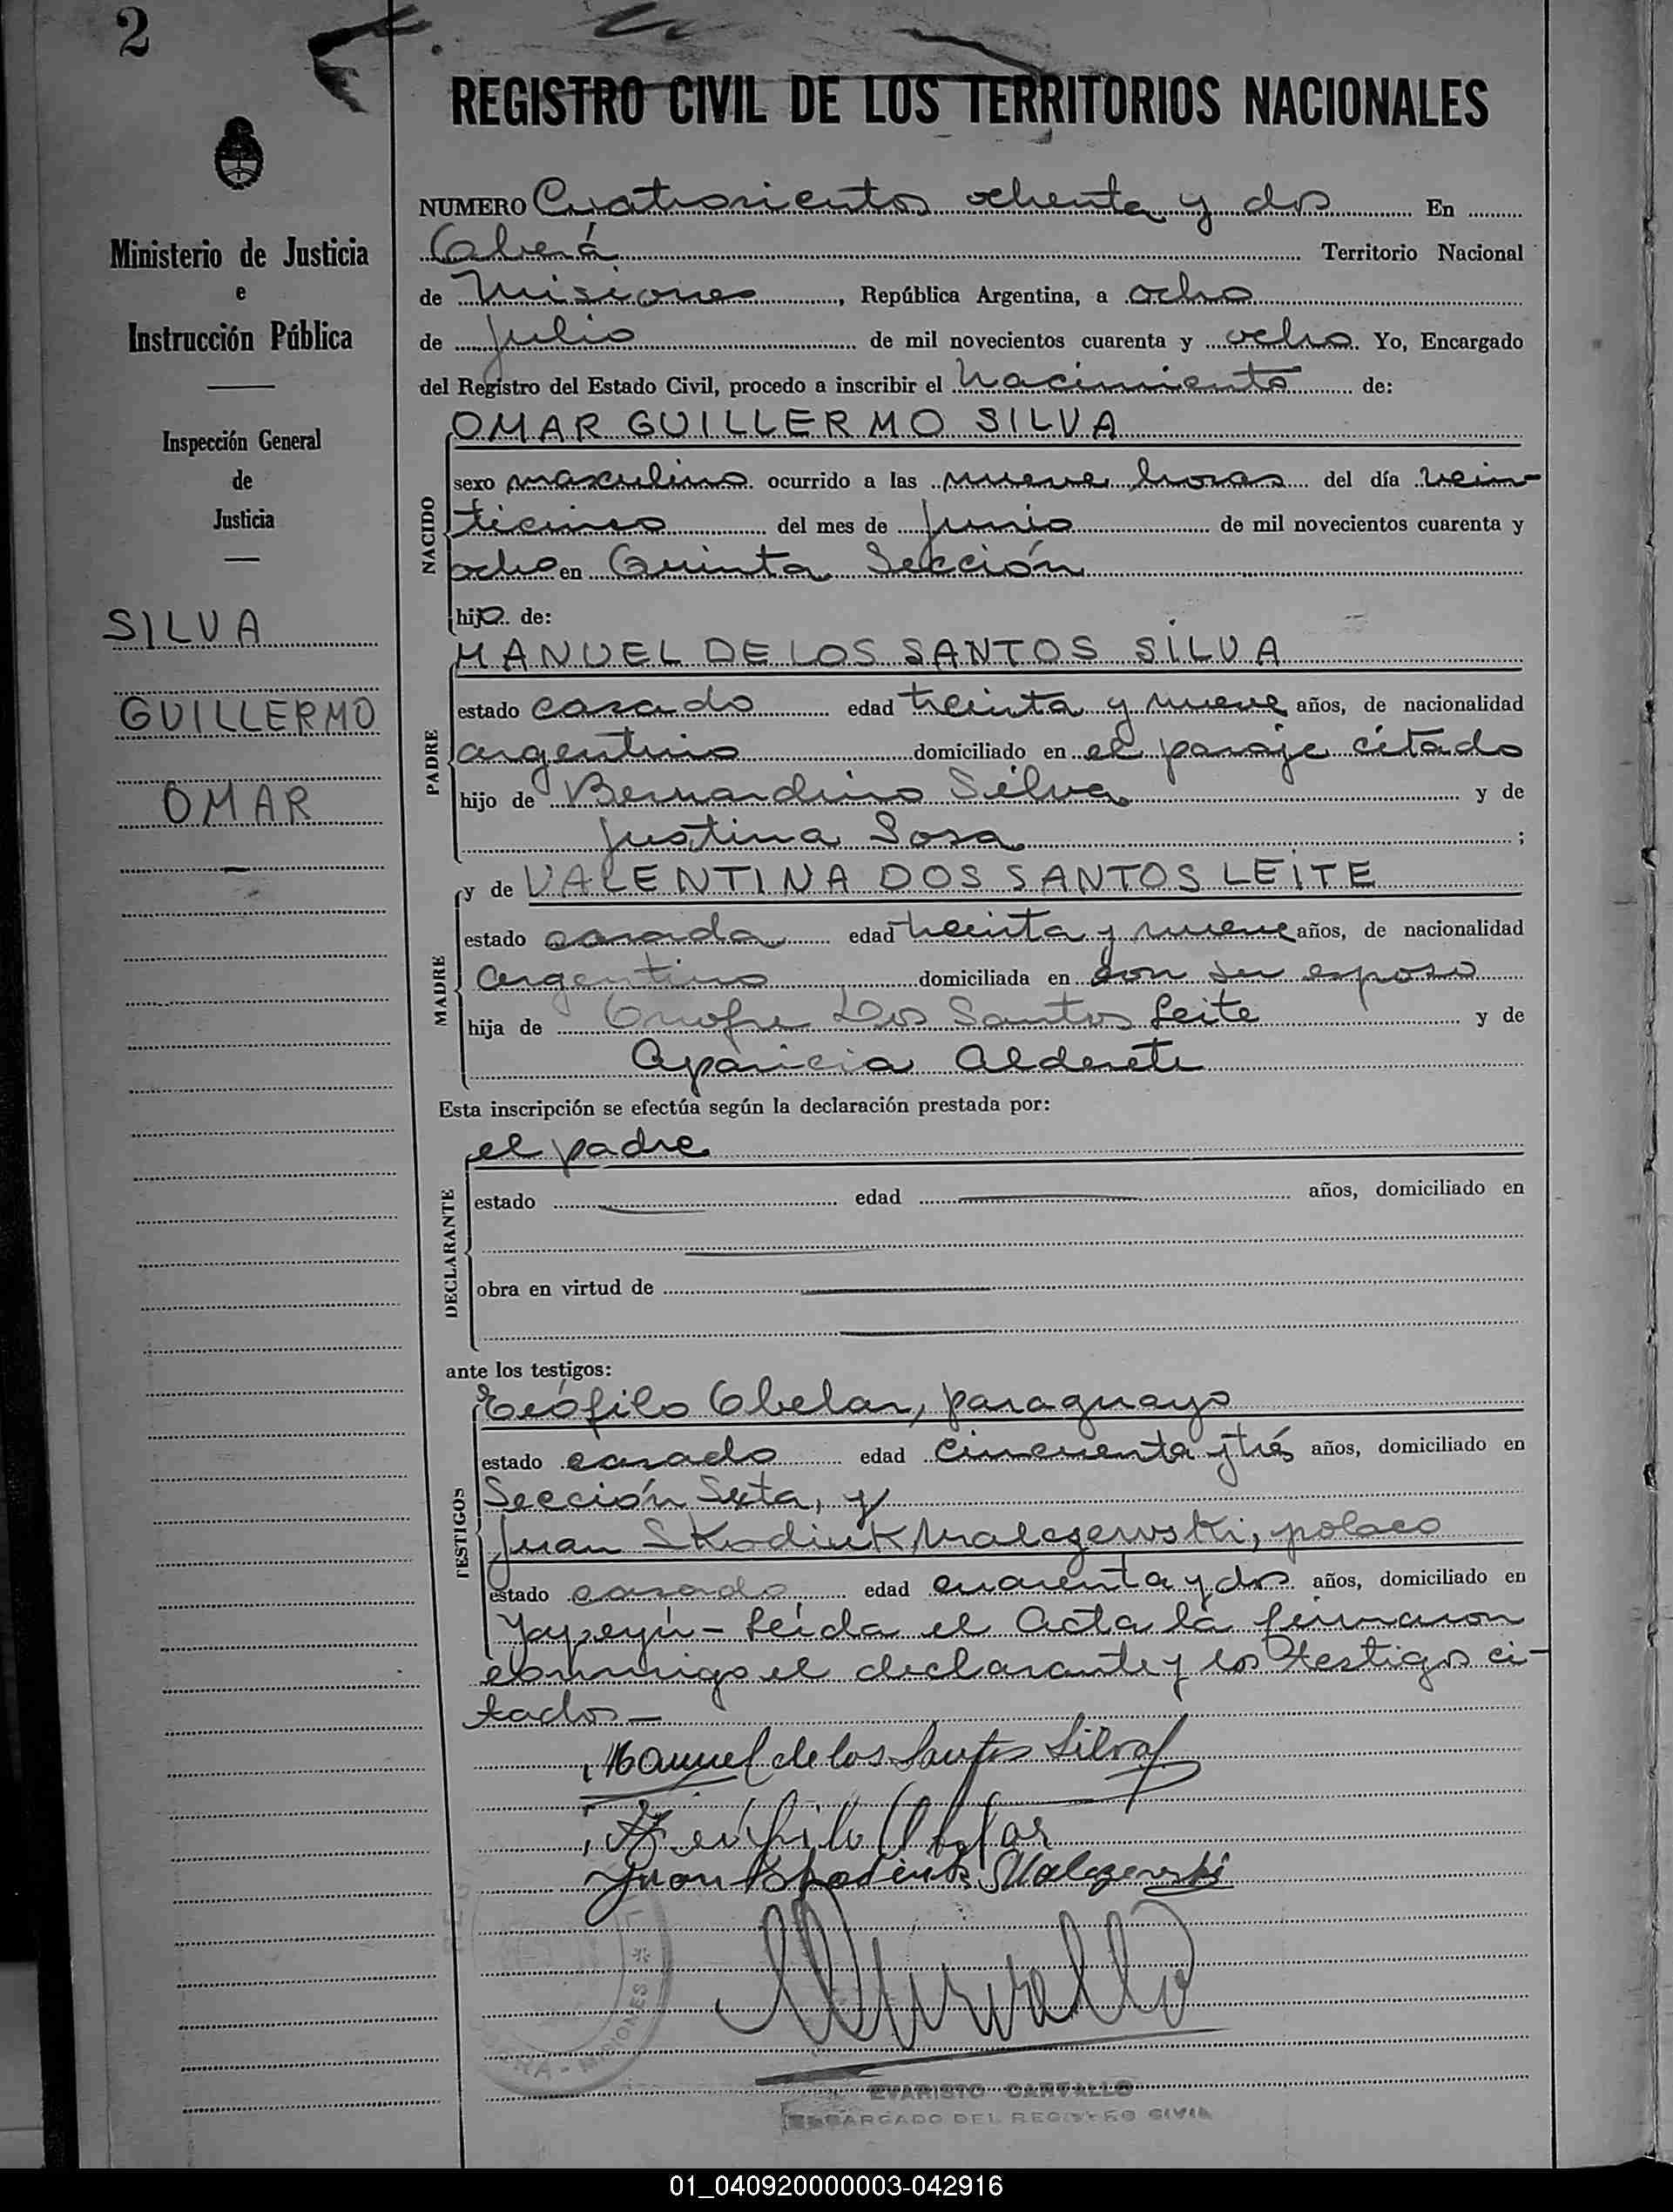 2
REGISTRO CIVIL DE LOS TERRITORIOS NACIONALES
Ministerio de Justicia
e
Instrucción Pública
Inspección General
de
Justicia
SILVA
GUILLERMO
OMAR
NUMERO Cuatrocientos ochenta y dos En
Oberá Territorio Nacional
de Misiones, República Argentina, a ocho
de julio de mil novecientos cuarenta y ocho. Yo, Encargado
del Registro del Estado Civil, procedo a inscribir el Nacimiento de:
NACIDO
OMAR GUILLERMO SILVA
sexo masculino ocurrido a las nueve horas del día vein-
ticinco del mes de Junio de mil novecientos cuarenta y
ocho en Quinta Sección
hijo de:
PADRE
MANUEL DE LOS SANTOS SILVA
estado casado edad treinta y nueve años, de nacionalidad
argentino domiciliado en el paraje citado
hijo de Bernardino Silva y de
Justina Sosa ;
MADRE
y de VALENTINA DOS SANTOS LEITE
estado casada edad treinta y nueve años, de nacionalidad
Argentino domiciliada en con su esposo
hija de Onofre Dos Santos Leite y de
Aparicia Alderete
Esta inscripción se efectúa según la declaración prestada por:
DECLARANTE
el padre
estado edad años, domiciliado en
obra en virtud de
ante los testigos:
TESTIGOS
Teófilo Obelar, paraguayo
estado casado edad cincuenta y trés años, domiciliado en
Sección Sexta, y
Juan Skodiuk Malczewski, polaco
estado casado edad cuarenta y dos años, domiciliado en
Yapeyú - Leída el Acta la firmaron
conmigo el declarante y los testigos ci-
tados -
Manuel de los Santos Silva
Teófilo Obelar
Juan Malczewski
MISIONES
EVARISTO CARVALLO
ENCARGADO DEL REGISTRO CIVIL
01_040920000003-042916